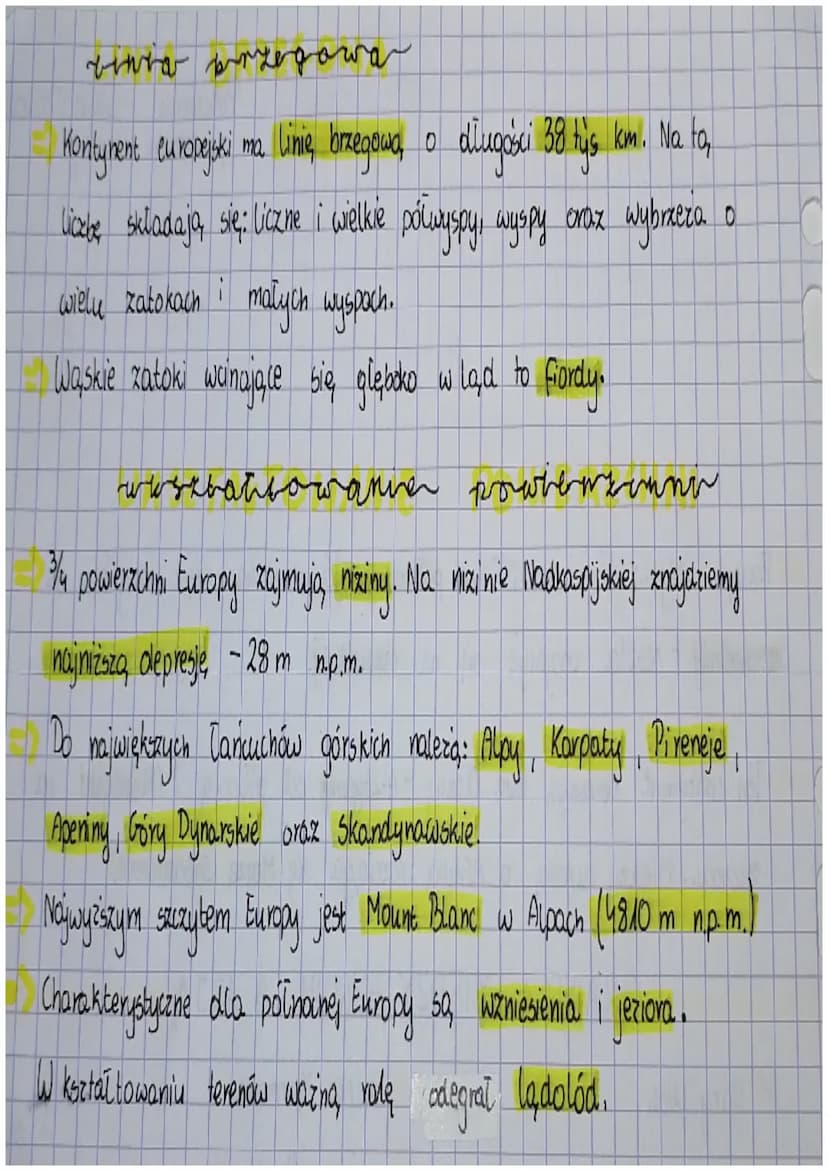 Linia brzegowa
⇒ Kontynent europejski ma linię brzegową o długości 38 tyś km. Na tą
liczbę składają się: liczne i wielkie półwyspy, wyspy oraz wybrzeża o
wielu zatokach i małych wyspach.
⇒ Wąskie zatoki wcinające się głęboko w ląd to fiordy.
ukształtowanie powierzchni
⇒ 3/4 powierzchni Europy zajmują niziny. Na nizinie Nadkaspijskiej znajdziemy
najniższą depresję -28 m n.p.m.
⇒ Do największych łańcuchów górskich należą: Alpy, Karpaty, Pireneje,
Apeniny, Góry Dynarskie oraz Skandynawskie.
⇒ Najwyższym szczytem Europy jest Mount Blanc w Alpach (4810 m n.p.m.)
⇒ Charakterystyczne dla północnej Europy są wzniesienia i jeziora.
W kształtowaniu terenów ważną rolę odegrał lądolód.